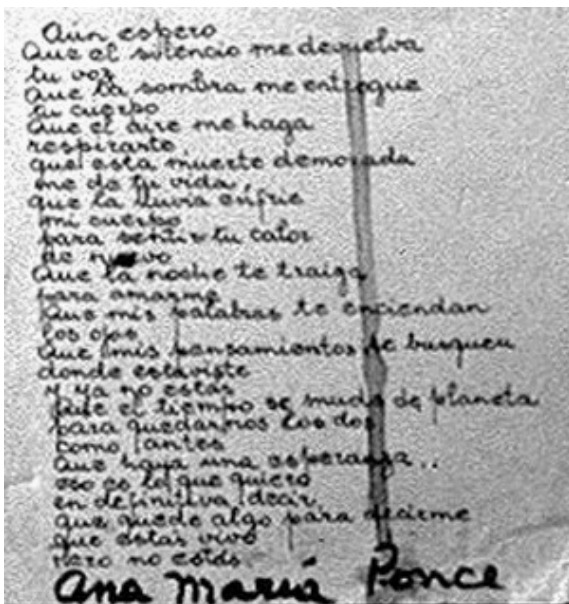 Aún espero
Que el silencio me devuelva
tu voz
Que la sombra me entregue
tu cuerpo
Que el aire me haga
respirarte
que esta muerte demorada
me de tu vida,
que la lluvia enfrie
mi cuerpo
para sentir tu calor
de nuevo
Que la noche te traiga
para amarme
Que mis palabras te enciendan
los ojos
Que mis pensamientos te busquen
donde estuviste
y ya no estás
Que el tiempo se mude de planeta
para quedarnos los dos
como antes
Que haya una esperanza..
eso es lo que quiero
en definitiva decir
que quede algo para decirme
que estás vivo
pero no estás.
Ana María Ponce